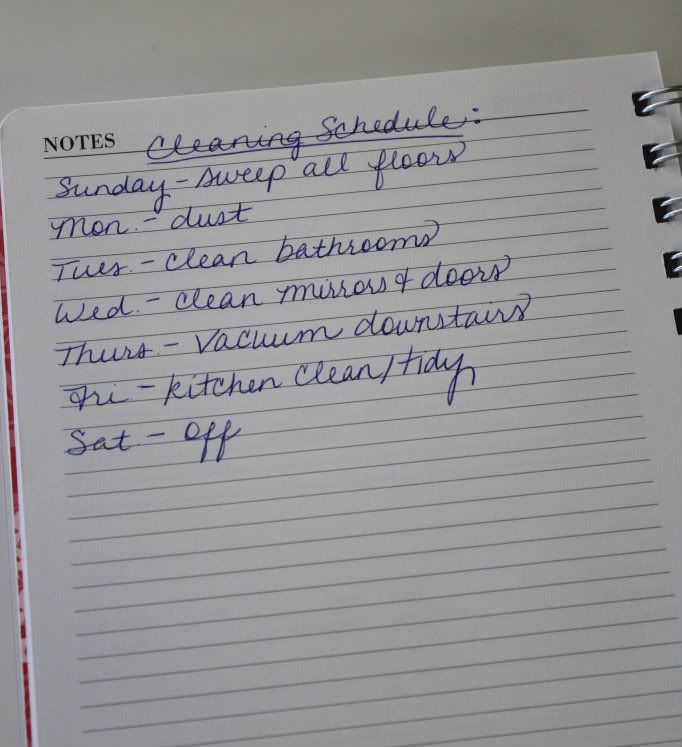 NOTES Cleaning Schedule:
Sunday - sweep all floors
Mon. - dust
Tues. - clean bathrooms
Wed. - clean mirrors & doors
Thurs. - vacuum downstairs
Fri - kitchen clean/tidy
Sat - Off